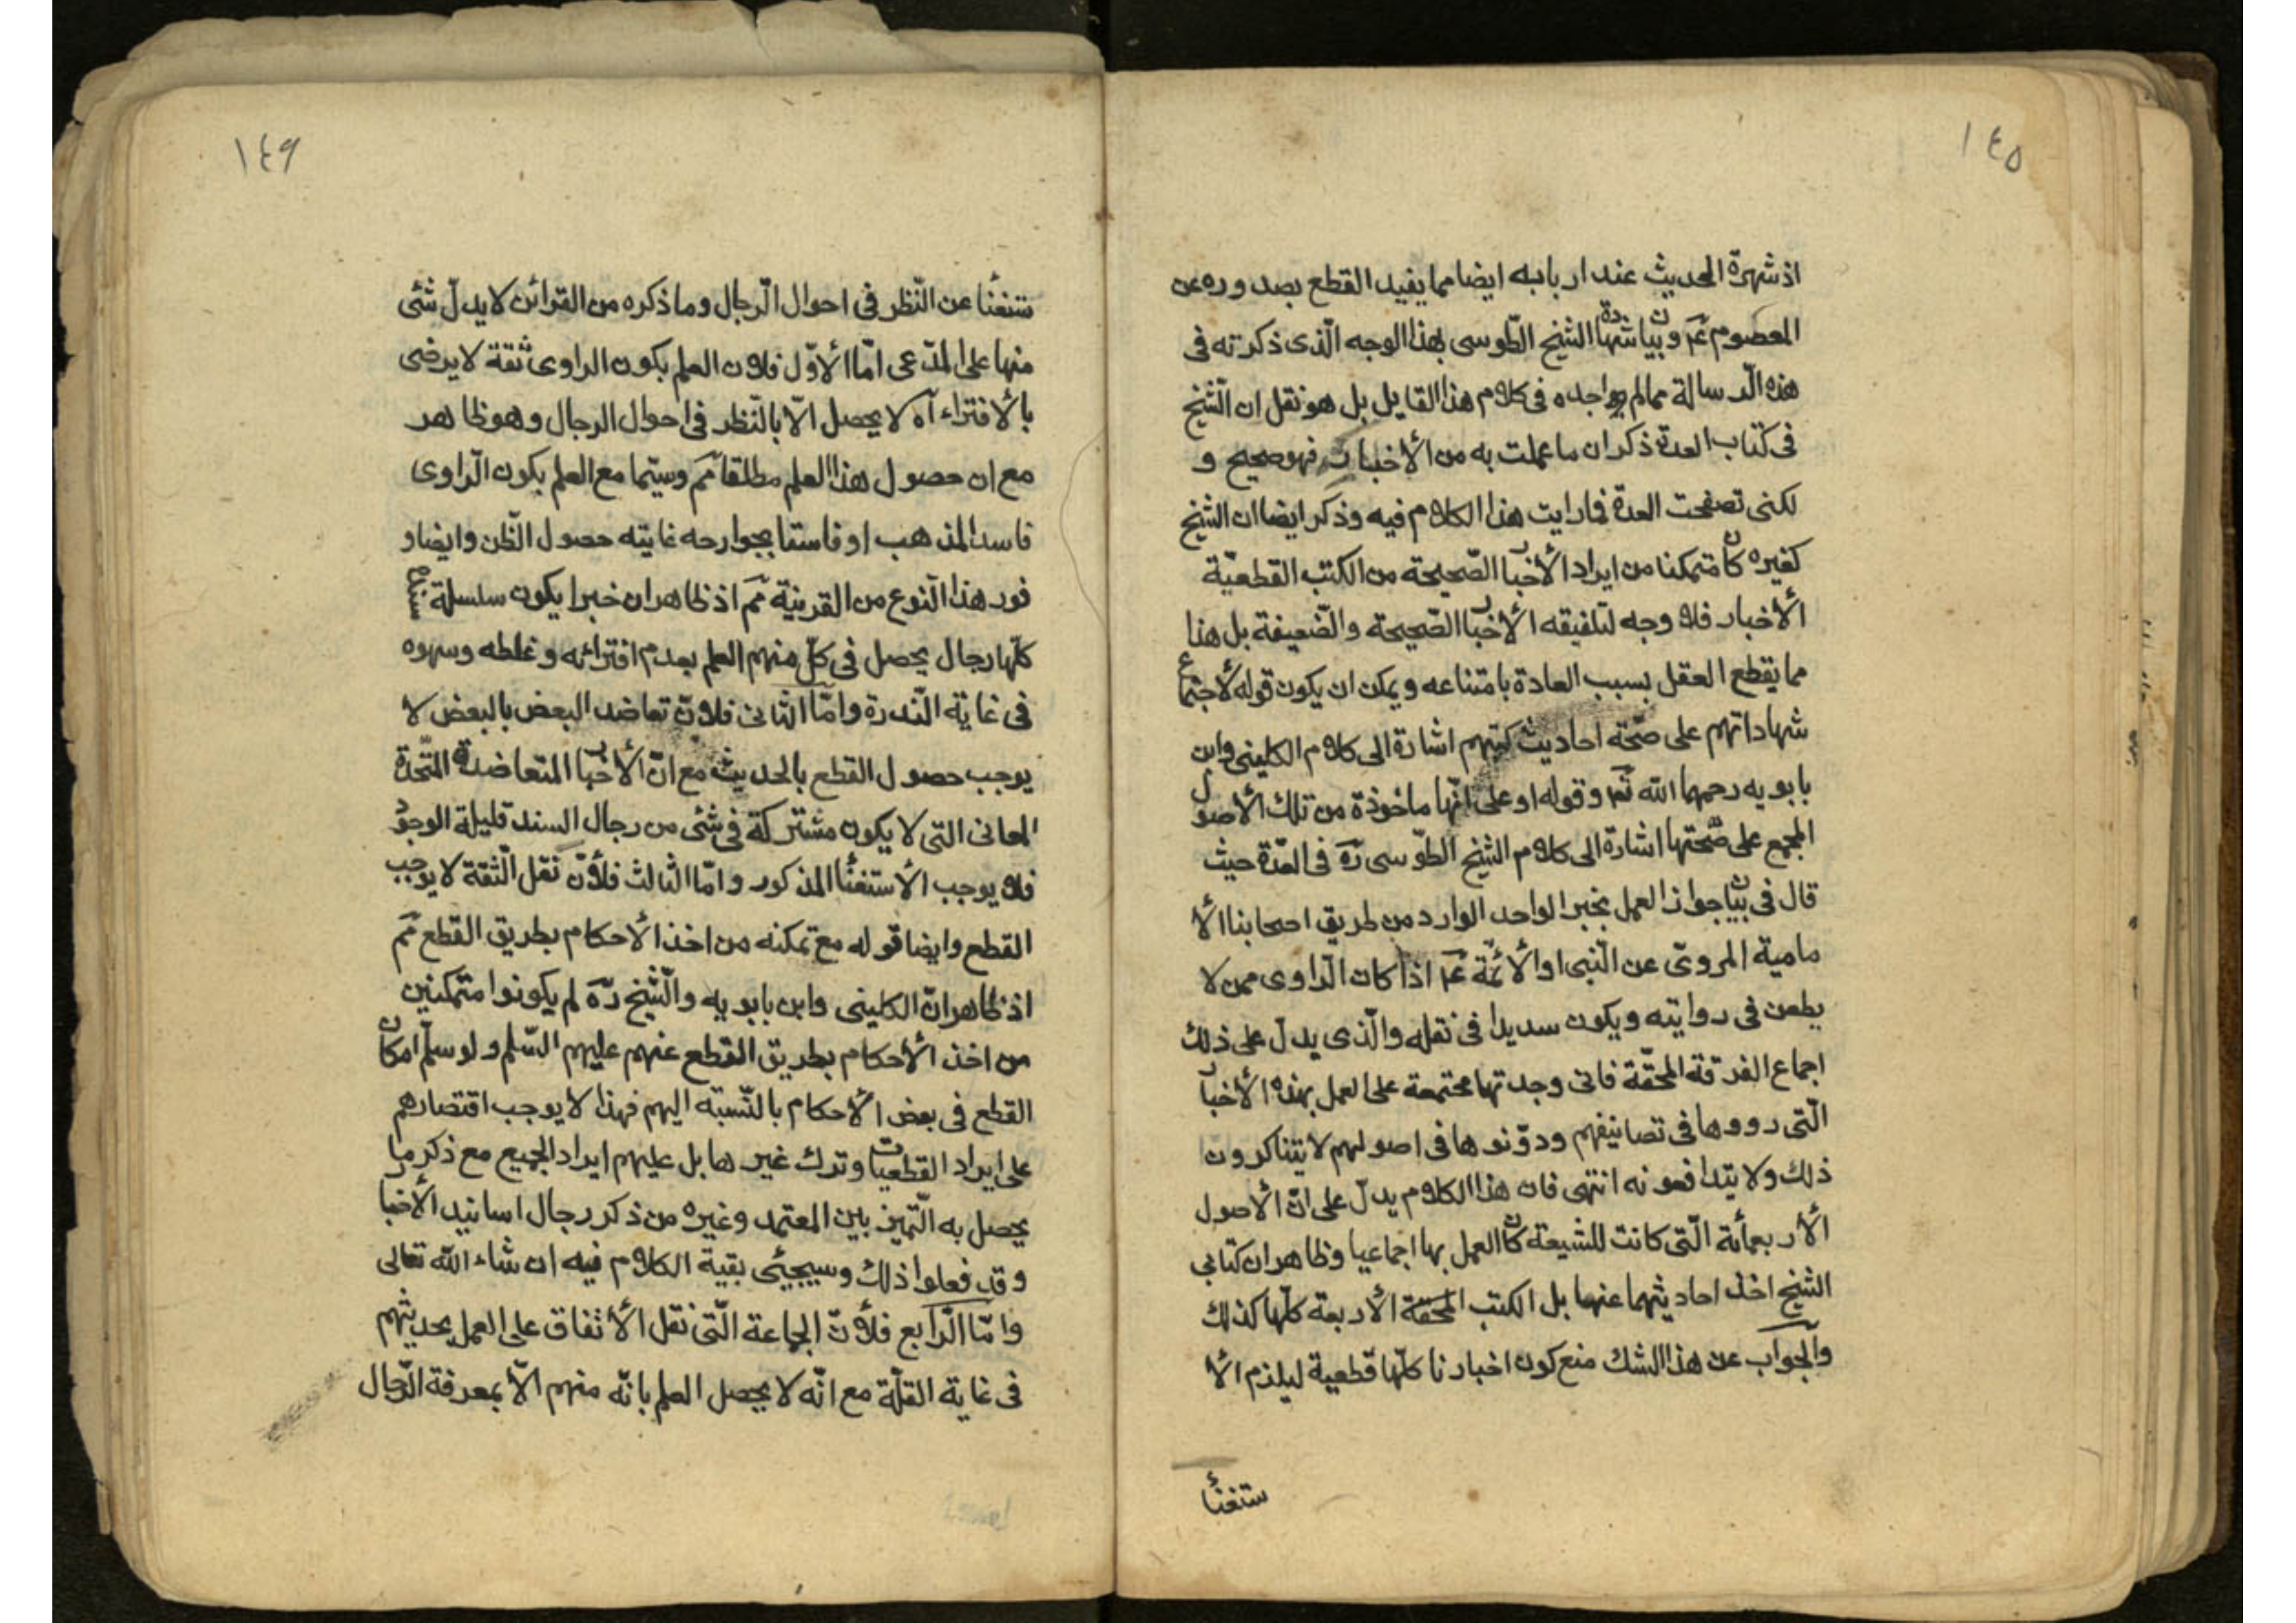 ١٤٥
اذ شهرة الحديث عند اربابه ايضا مما يفيد القطع بصدوره عن
المعصوم عم وبيان شهادة الشيخ الطوسى بهذا الوجه الّذى ذكرته فى
هذه الرسالة مما لم اجده فى كلام هذا القايل بل هو نقل ان الشيخ
فى كتاب العدة ذكر ان ما عملت به من الأخبار فهو صحيح و
لكنى تصفحت العدة فما رايت هذا الكلام فيه وذكر ايضا ان الشيخ
كغيره كان متمكنا من ايراد الأخبار الصّحيحة من الكتب القطعيّة
الأخبار فلا وجه لتلفيقه الأخبار الصّحيحة والضعيفة بل هذا
مما يقطع العقل بسبب العادة بامتناعه ويمكن ان يكون قوله لاجتماع
شهاداتهم على صحّة احاديث كتبهم اشارة الى كلام الكلينى وابن
بابويه رحمهما الله تم وقوله او على انّها ماخوذة من تلك الأصول
المجمع على صحّتها اشارة الى كلام الشيخ الطّوسى ره فى العدّة حيث
قال فى بيان جواز العمل بخبر الواحد الوارد من طريق اصحابنا الأ
مامية المروىّ عن النّبى او الأئمّة عم اذا كان الرّاوى ممن لا
يطعن فى روايته ويكون سديدا فى نقله والّذى يدلّ على ذلك
اجماع الفرقة المحقّة فانى وجدتها مجتمعة على العمل بهذه الأخبار
الّتى رووها فى تصانيفهم ودوّنوها فى اصولهم لا يتناكرون
ذلك ولا يتدافعونه انتهى فان هذا الكلام يدلّ على انّ الأصول
الأربعمأة الّتى كانت للشيعة كان العمل بها اجماعيا وظاهر ان كتابى
الشيخ اخذ احاديثهما عنها بل الكتب المحقة الأربعة كلّها كذلك
والجواب عن هذا الشك منع كون اخبارنا كلّها قطعية ليلزم الأ
ستغنأ
١٤٩
ستغنأ عن النّظر فى احوال الرّجال وما ذكره من القرائن لا يدلّ شئى
منها على المدّعى امّا الأوّل فلان العلم بكون الراوى ثقة لا يرضى
بالأفتراء آه لا يحصل الّا بالنّظر فى احوال الرجال وهو ظاهر
مع ان حصول هذا العلم مطلقا مم وسيّما مع العلم بكون الرّاوى
فاسد المذهب او فاسقا بجوارحه غايته حصول الظّن وايضا و
فور هذا النّوع من القرينة مم اذ ظاهر ان خبرا يكون سلسلة
كلّها رجال يحصل فى كلّ منهم العلم بعدم افترائه وغلطه وسهوه
فى غاية النّدرة وامّا الثّانى فلانّ تعاضد البعض بالبعض لا
يوجب حصول القطع بالحديث مع انّ الأخبار المتعاضدة المتّحدة
المعانى التى لا يكون مشتركة فى شئى من رجال السند قليلة الوجود
فلا يوجب الأستغنأ المذكور وامّا الثالث فلأنّ نقل الثّقة لا يوجب
القطع وايضا قوله مع تمكنه من اخذ الأحكام بطريق القطع مم
اذ ظاهر انّ الكلينى وابن بابويه والشّيخ ره لم يكونوا متمكنين
من اخذ الأحكام بطريق القطع عنهم عليهم السّلم ولو سلّم امكان
القطع فى بعض الأحكام بالنّسبة اليهم فهذا لا يوجب اقتصارهم
على ايراد القطعيات وترك غيرها بل عليهم ايراد الجميع مع ذكر ما
يحصل به التّميز بين المعتمد وغيره من ذكر رجال اسانيد الأخبا
وقد فعلوا ذلك وسيجيئى بقية الكلام فيه ان شاء الله تعالى
وامّا الرّابع فلأنّ الجماعة الّتى نقل الأتفاق على العمل بحديثهم
فى غاية القلّة مع انّه لا يحصل العلم بانّه منهم الّا بمعرفة الرّجال